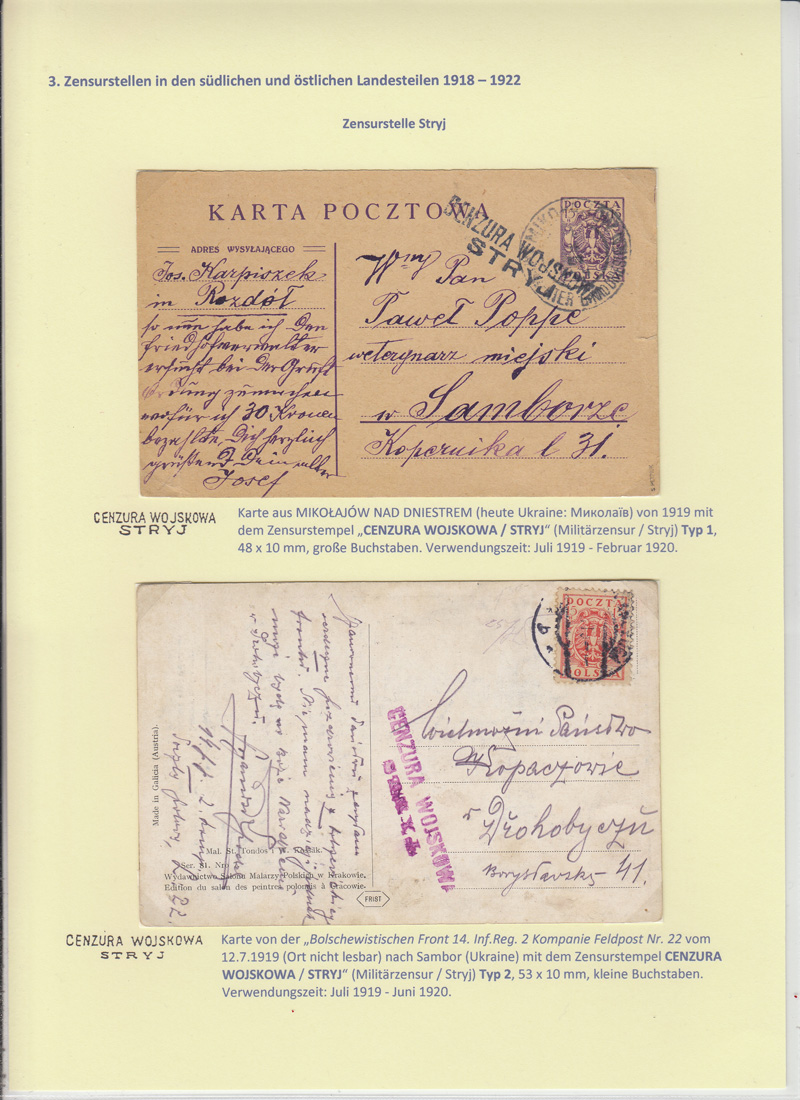 3. Zensurstellen in den südlichen und östlichen Landesteilen 1918 – 1922
Zensurstelle Stryj
KARTA POCZTOWA
CENZURA WOJSKOWA
STRYJ
POCZTA
POLSKA
ADRES WYSYŁAJĄCEGO
Jos. Karpiszek
in Rozdół
so habe ich den
Friedhofverwalter
ersucht bei der Gruft
wofür ich 30 Kronen
bezahlte, Dich herzlich
grüßend Dein alter
Josef
Wny Pan
Paweł Poppe
weterynarz miejski
w Samborze
Kopernika l 31.
CENZURA WOJSKOWA
STRYJ
Karte aus MIKOŁAJÓW NAD DNIESTREM (heute Ukraine: Миколаїв) von 1919 mit
dem Zensurstempel „CENZURA WOJSKOWA / STRYJ“ (Militärzensur / Stryj) Typ 1,
48 x 10 mm, große Buchstaben. Verwendungszeit: Juli 1919 - Februar 1920.
POCZTA
POLSKA
Made in Galicia (Austria).
Mal. St. Tondos i W. Kossak.
Ser. 31. Nro
Wydawnictwo Salonu Malarzy Polskich w Krakowie.
Edition du salon des peintres polonais à Cracovie.
FRIST
CENZURA WOJSKOWA
Wielmożni Państwo
Kopaczowie
w
Drohobyczu
Borysławska 41.
CENZURA WOJSKOWA
STRYJ
Karte von der „Bolschewistischen Front 14. Inf.Reg. 2 Kompanie Feldpost Nr. 22 vom
12.7.1919 (Ort nicht lesbar) nach Sambor (Ukraine) mit dem Zensurstempel CENZURA
WOJSKOWA / STRYJ“ (Militärzensur / Stryj) Typ 2, 53 x 10 mm, kleine Buchstaben.
Verwendungszeit: Juli 1919 - Juni 1920.